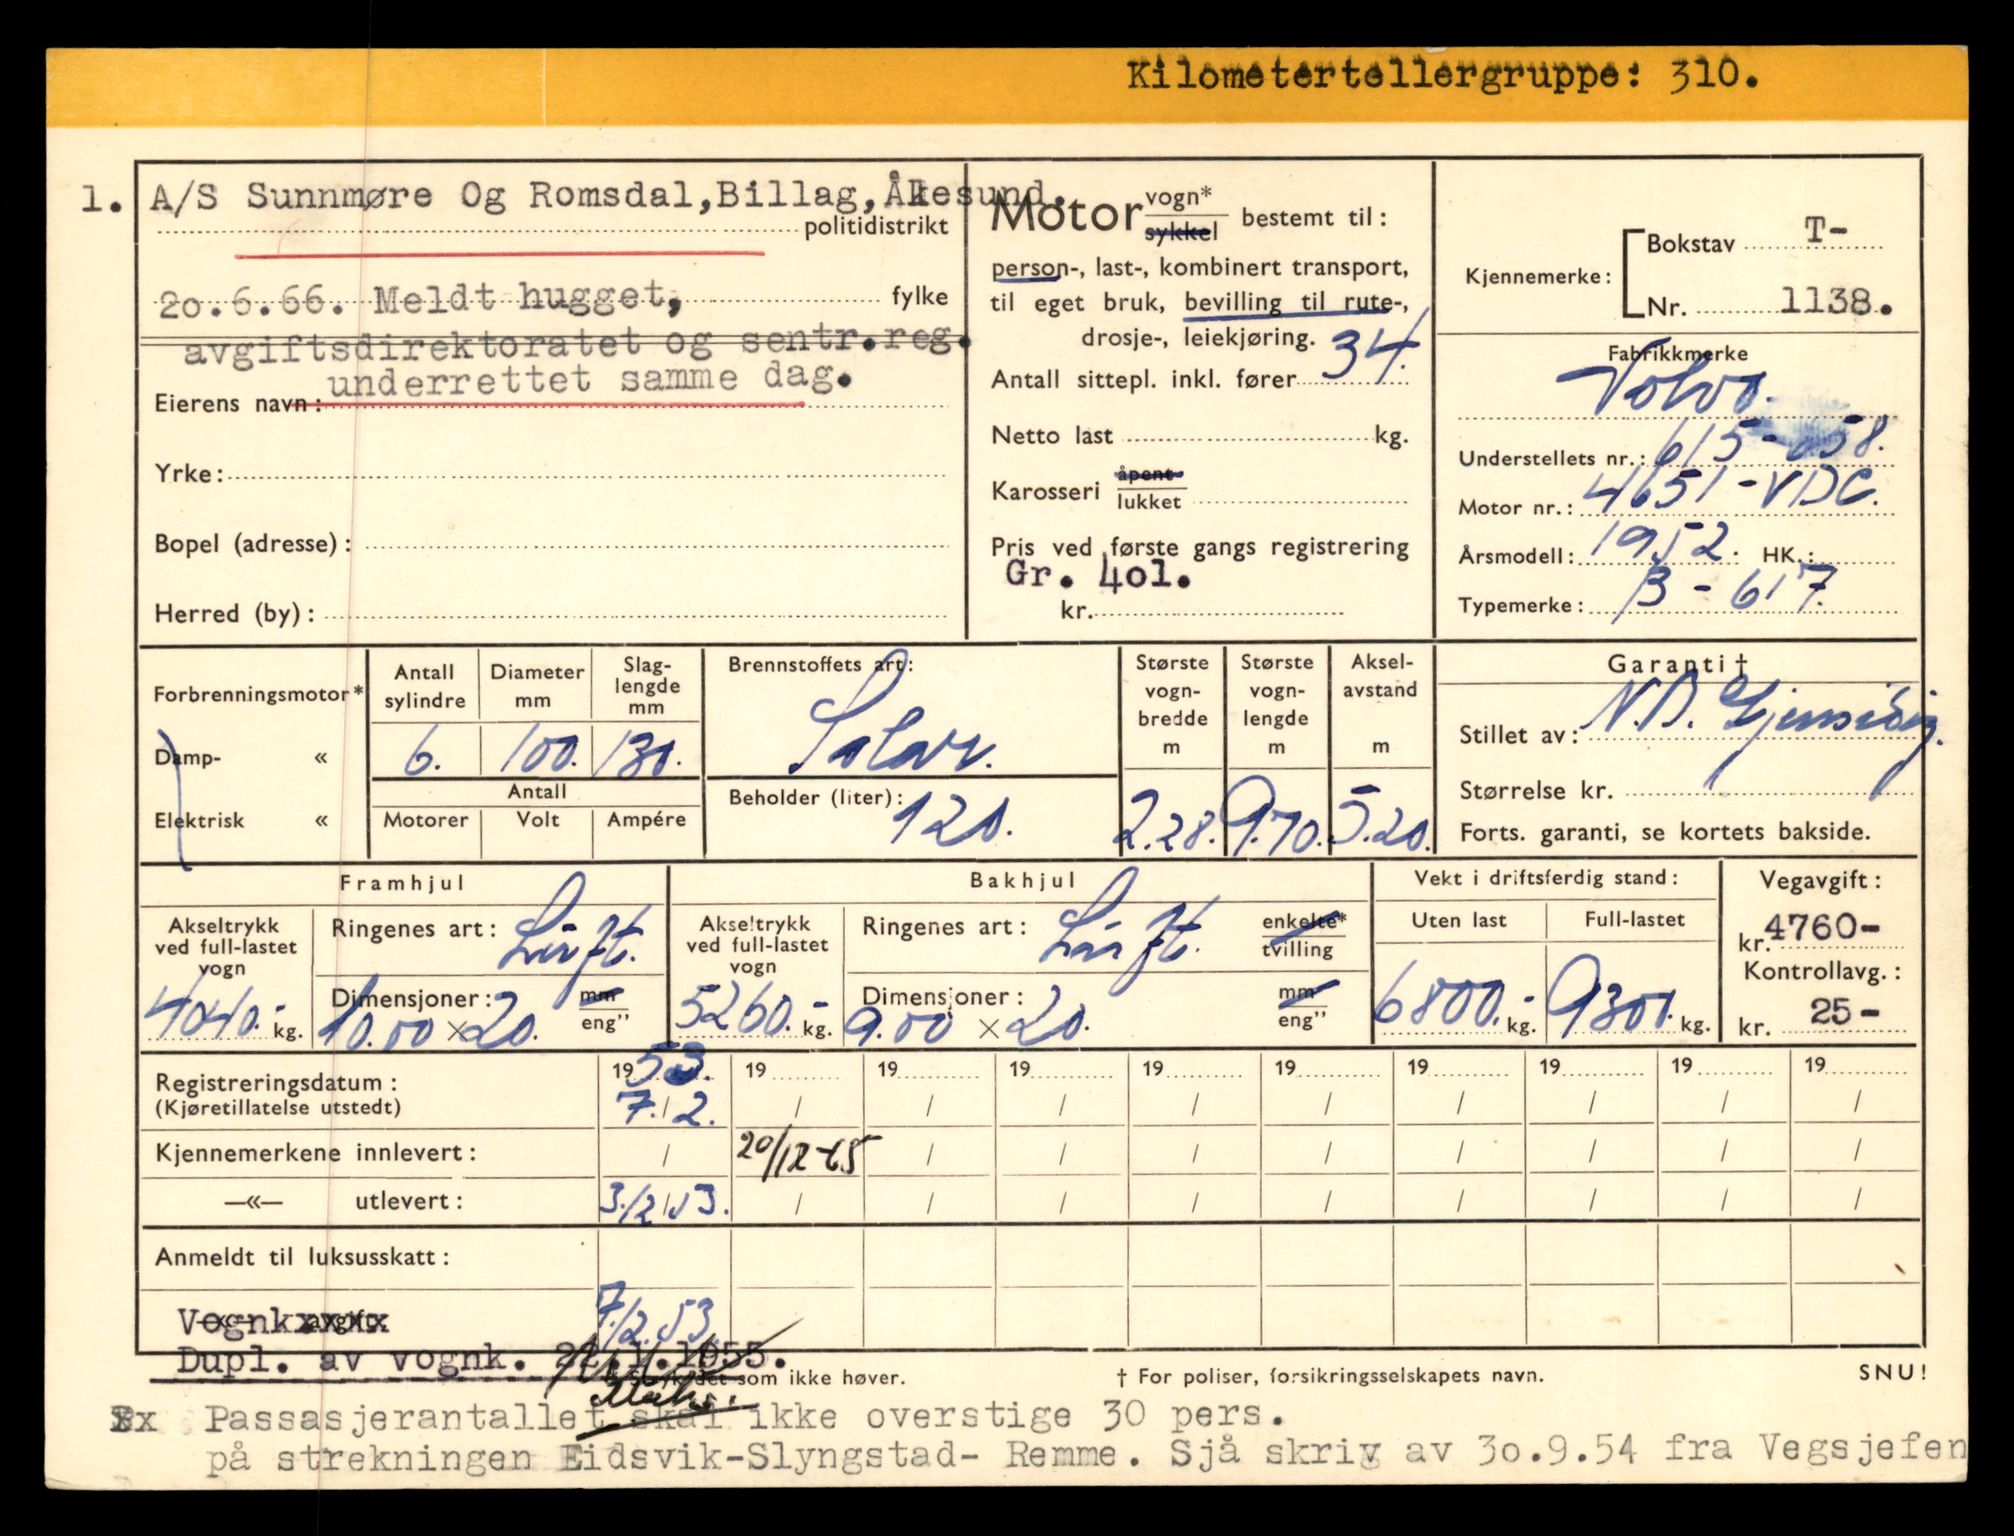 Kilometertellergruppe: 310.
1. A/S Sunnmøre Og Romsdal,Billag,Ålesund.
politidistrikt
20.6.66. Meldt hugget, fylke
avgiftsdirektoratet og sentr.reg.
underrettet samme dag.
Eierens navn:
Yrke:
Bopel (adresse):
Herred (by):
Motor vogn* sykkel bestemt til:
person-, last-, kombinert transport,
til eget bruk, bevilling til rute-,
drosje-, leiekjøring.
Antall sittepl. inkl. fører 34.
Netto last kg.
Karosseri åpent lukket
Pris ved første gangs registrering
Gr. 4o1.
kr.
Kjennemerke: Bokstav T-
Nr. 1138.
Fabrikkmerke
Volvo.
Understellets nr.: 615-658.
Motor nr.: 4651-VDC.
Årsmodell: 1952. HK.:
Typemerke: B-617.
Forbrenningsmotor*
Damp- «
Elektrisk «
Antall sylindre 6.
Diameter mm 100.
Slag-lengde mm 130.
Antall
Motorer Volt Ampére
Brennstoffets art:
Solar.
Beholder (liter): 120.
Største vogn-bredde m 2.28.
Største vogn-lengde m 9.70.
Aksel-avstand m 5.20.
Garanti †
Stillet av: N.B. Gjensidig.
Størrelse kr.
Forts. garanti, se kortets bakside.
Framhjul
Akseltrykk ved full-lastet vogn
4040.- kg.
Ringenes art: Luft.
Dimensjoner: mm eng"
10.00 x 20.
Bakhjul
Akseltrykk ved full-lastet vogn
5260.- kg.
Ringenes art: Luft. enkelte* tvilling
Dimensjoner: mm eng"
9.00 x 20.
Vekt i driftsferdig stand:
Uten last Full-lastet
6800.- kg. 9300. kg.
Vegavgift:
kr. 4760-
Kontrollavg.:
kr. 25-
Registreringsdatum: 1953. 19 19 19 19 19 19 19 19 19
(Kjøretillatelse utstedt) 7./2. / / / / / / / / /
Kjennemerkene innlevert: / 20/12-65 / / / / / / / /
—«— utlevert: 3./2 53. / / / / / / / / /
Anmeldt til luksusskatt:
Vognkxxxx 7./2.53.
Dupl. av vognk. 22.1.1955.
som ikke høver. † For poliser, forsikringsselskapets navn. SNU!
Passasjerantallet skal ikke overstige 30 pers.
på strekningen Eidsvik-Slyngstad- Remme. Sjå skriv av 3o.9.54 fra Vegsjefen